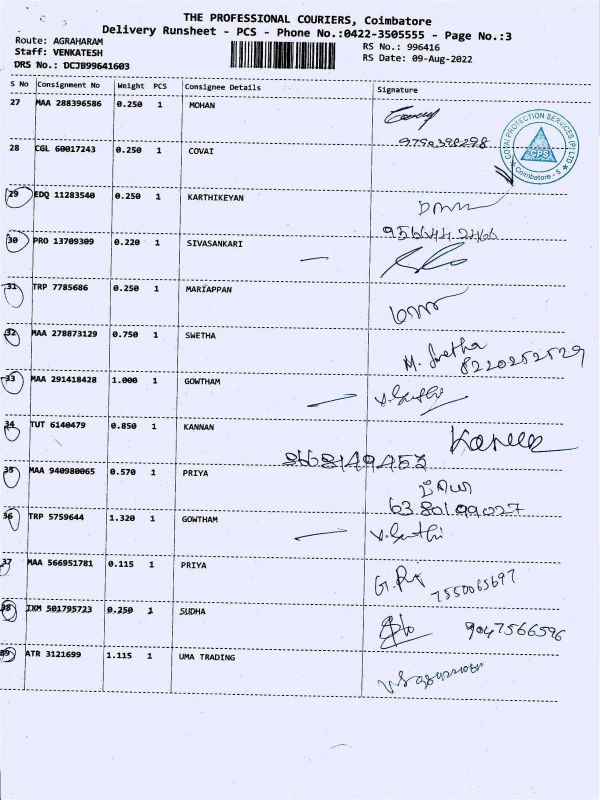 THE PROFESSIONAL COURIERS, Coimbatore
Delivery Runsheet - PCS - Phone No.:0422-3505555 - Page No.:3
Route: AGRAHARAM
Staff: VENKATESH
DRS No.: DCJB99641603
RS No.: 996416
RS Date: 09-Aug-2022
S No Consignment No Weight PCS Consignee Details Signature
27 MAA 288396586 0.250 1 MOHAN
COVAI PROTECTION SERVICES (P) LTD
CPS
Coimbatore - 5
28 CGL 60017243 0.250 1 COVAI
29 EDQ 11283540 0.250 1 KARTHIKEYAN
30 PRO 13709309 0.220 1 SIVASANKARI
31 TRP 7785686 0.250 1 MARIAPPAN
32 MAA 278873129 0.750 1 SWETHA
M. Swetha
8220252529
33 MAA 291418428 1.000 1 GOWTHAM
34 TUT 6140479 0.850 1 KANNAN
35 MAA 940980065 0.570 1 PRIYA
பிரியா
63 801 99027
36 TRP 5759644 1.320 1 GOWTHAM
37 MAA 566951781 0.115 1 PRIYA
7550065697
38 IXM 501795723 0.250 1 SUDHA
9047566596
39 ATR 3121699 1.115 1 UMA TRADING